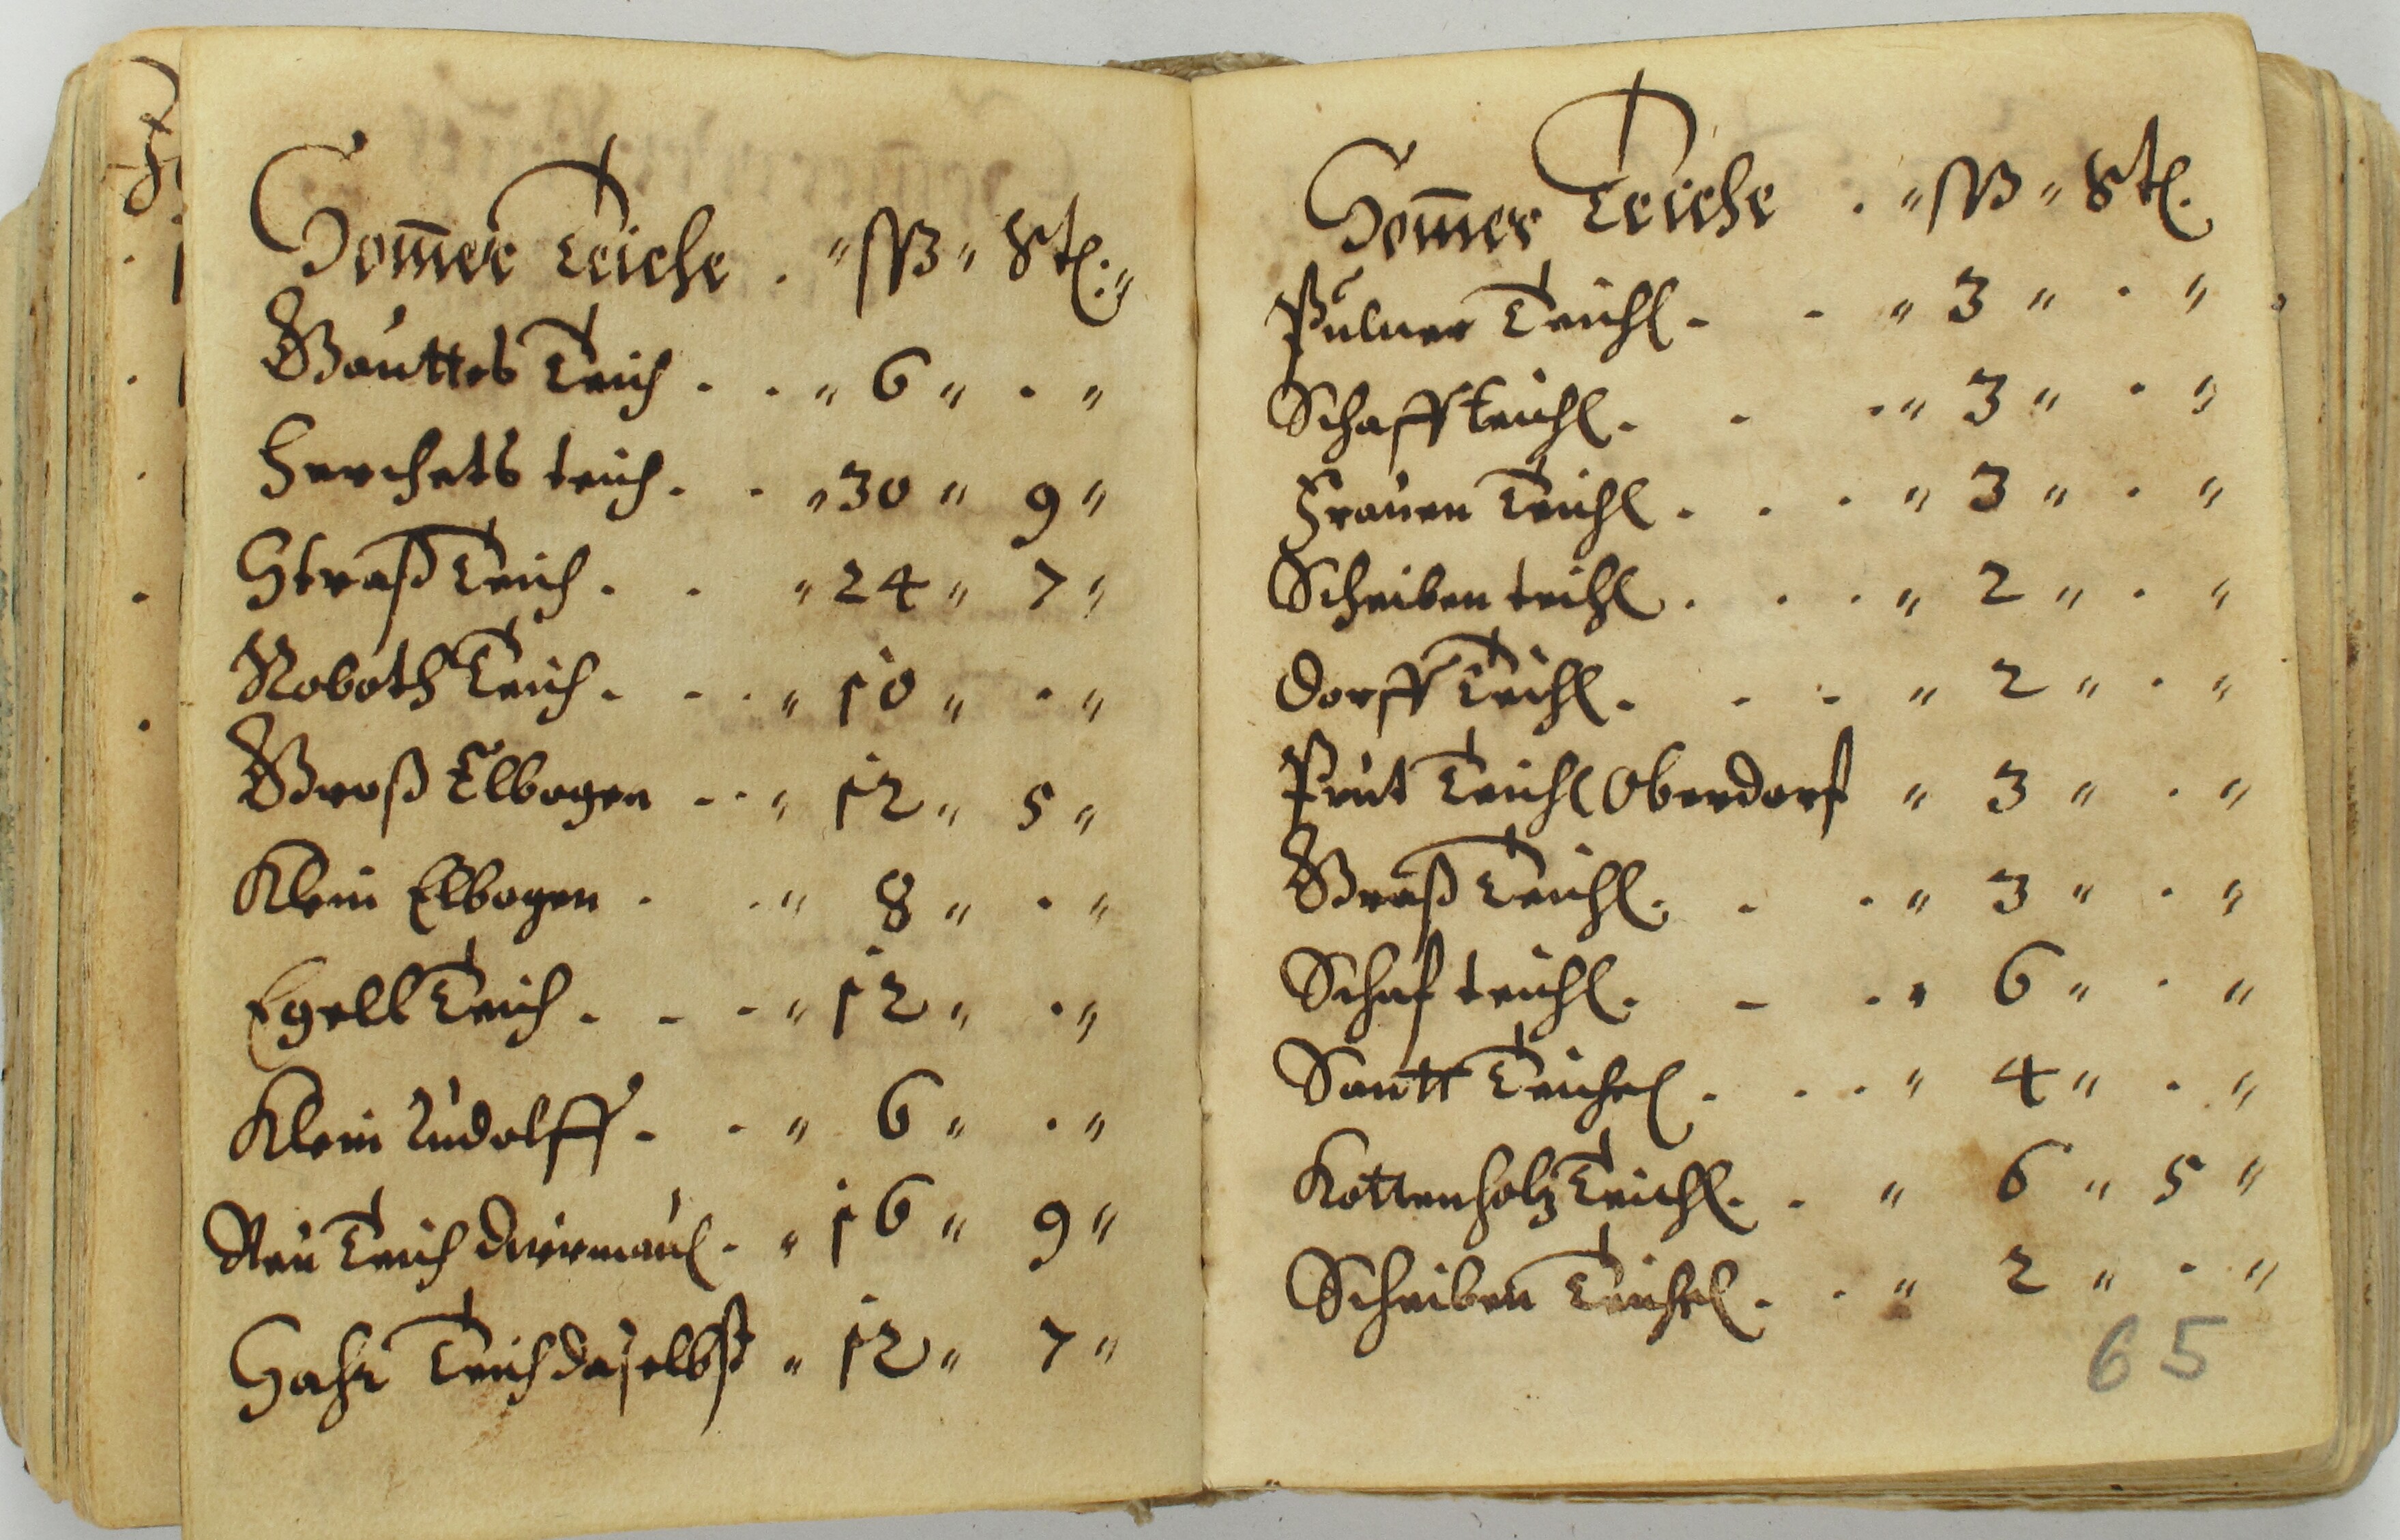 Som̄er Teiche . " ßß " Stl. "
Gauttes Teich . . " 6 " . "
Herchets teich . . " 30 " 9 "
Straß Teich . . " 24 " 7 "
Roboth Teich . . . " 10 " . "
Groß Elbogen . . . " 12 " 5 "
Klein Elbogen . . " 8 " . "
Egell Teich . . . " 12 " . "
Klein Rudolff . . " 6 " . "
Neu Teich . " 16 " 9 "
Teich daselbst " 12 " 7 "
Som̄er Teiche . " ßß " Stl.
Pulner Teichl . . " 3 " . "
Schaffteichl . . . " 3 " . "
Frauen Teichl . . . " 3 " . "
Scheiben teichl . . . " 2 " . "
Dorff Teichl . . . " 2 " . "
Prut Teichl Oberdorf " 3 " . "
Graß Teichl . . . " 3 " . "
Schaf teichl . . . " 6 " . "
Santt Teichel . . . " 4 " . "
Kottenholz Teichl . . " 6 " 5 "
Scheiben Teichel . . " 2 " . "
65